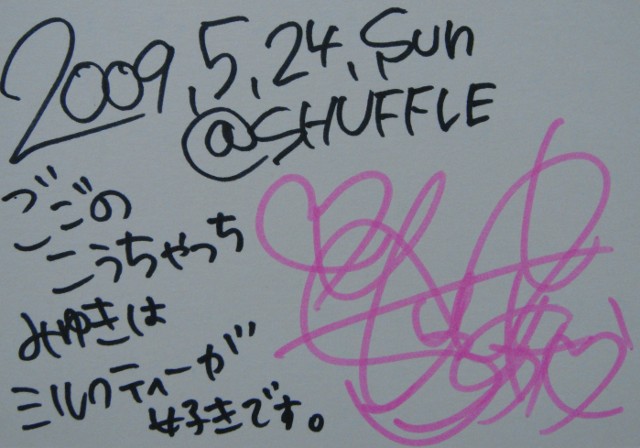 2009.5.24.Sun
@SHUFFLE
ごごの
こうちゃっち
みゆきは
ミルクティーが
好きです。